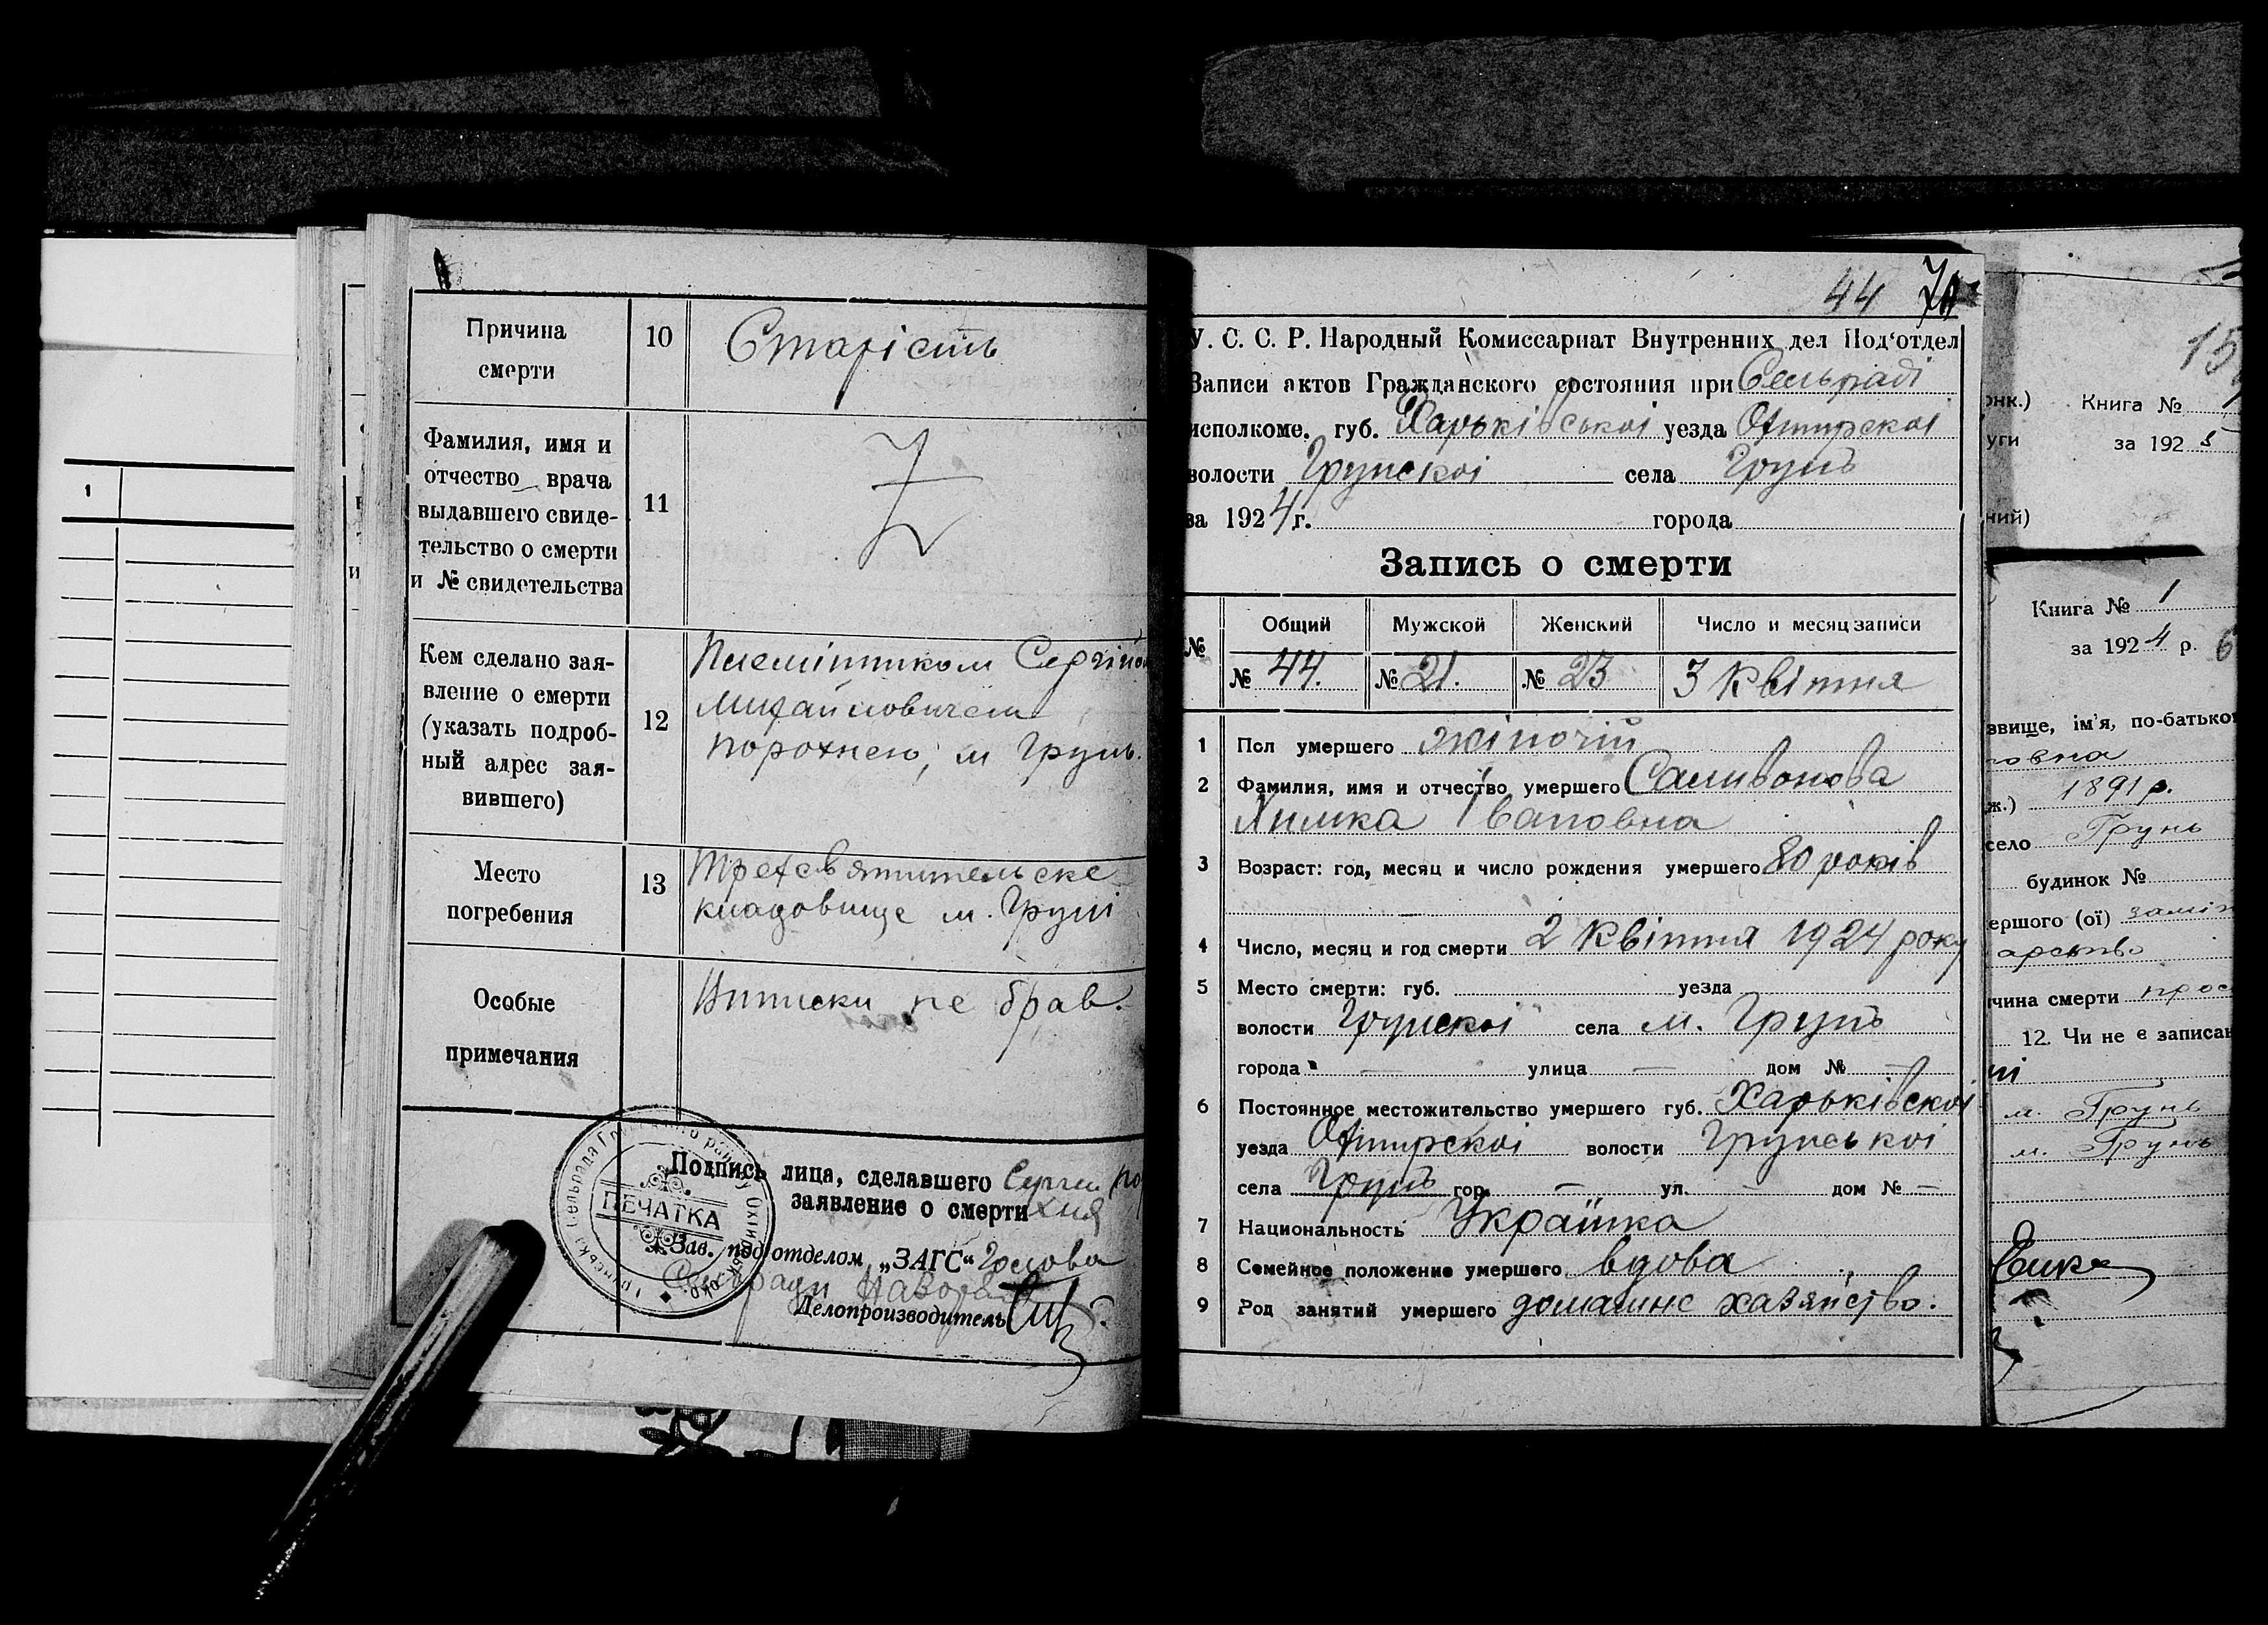 1
Причина
смерти
10
Старість
Фамилия, имя и
отчество врача
выдавшего свиде-
тельство о смерти
и № свидетельства
11
Кем сделано зая-
вление о смерти
(указать подроб-
ный адрес зая-
вившего)
12
Племінником Сергієм
Михайловичем
Порохнею, м Грунь.
Место
погребения
13
Трехсвятительске
кладовище м. Груні
Особые
примечания
Виписки не брав.
Подпись лица, сделавшего
заявление о смерти
Зав. под'отделом „ЗАГС“ Голова
Сельради
Делопроизводитель
ПЕЧАТКА
44
У. С. С. Р. Народный Комиссариат Внутренних дел Под'отдел
Записи актов Гражданского состояния при Сельраді
исполкоме. губ. Харьківськоі уезда Охтирскоі
волости Грунскоі села Грунь
за 1924 г. города
Запись о смерти
№ Общий Мужской Женский Число и месяц записи
№ 44. № 21. № 23 3 Квітня
1 Пол умершего жіночій
2 Фамилия, имя и отчество умершего Саливонова
Химка Івановна
3 Возраст: год, месяц и число рождения умершего 80 років
4 Число, месяц и год смерти 2 Квітня 1924 року
5 Место смерти: губ. уезда
волости Грунскоі села м. Грунь
города — улица — дом № —
6 Постоянное местожительство умершего губ. Харьківскоі
уезда Охтирскоі волости Грунськоі
села Грунь гор. — ул. — дом № —
7 Национальность Украінка
8 Семейное положение умершего вдова
9 Род занятий умершего домашнє хазяйство.
Книга №
за 192
Книга № 1
за 1924 р.
звище, ім'я, по-батько
1891 р.
село Грунь
будинок №
ершого (ої)
чина смерти
12. Чи не є записан
м. Грунь
м. Грунь